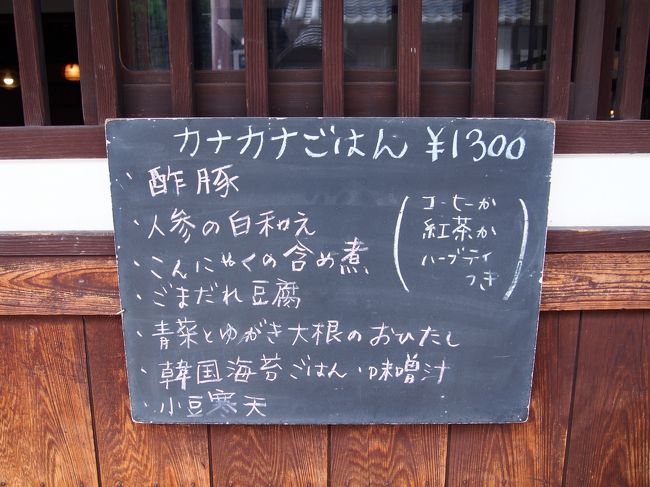 カナカナごはん ¥1300
・酢豚
・人参の白和え
・こんにゃくの含め煮
・ごまだれ豆腐
・青菜とゆがき大根のおひたし
・韓国海苔ごはん・味噌汁
・小豆寒天
(コーヒーか
紅茶か
ハーブティ
つき)